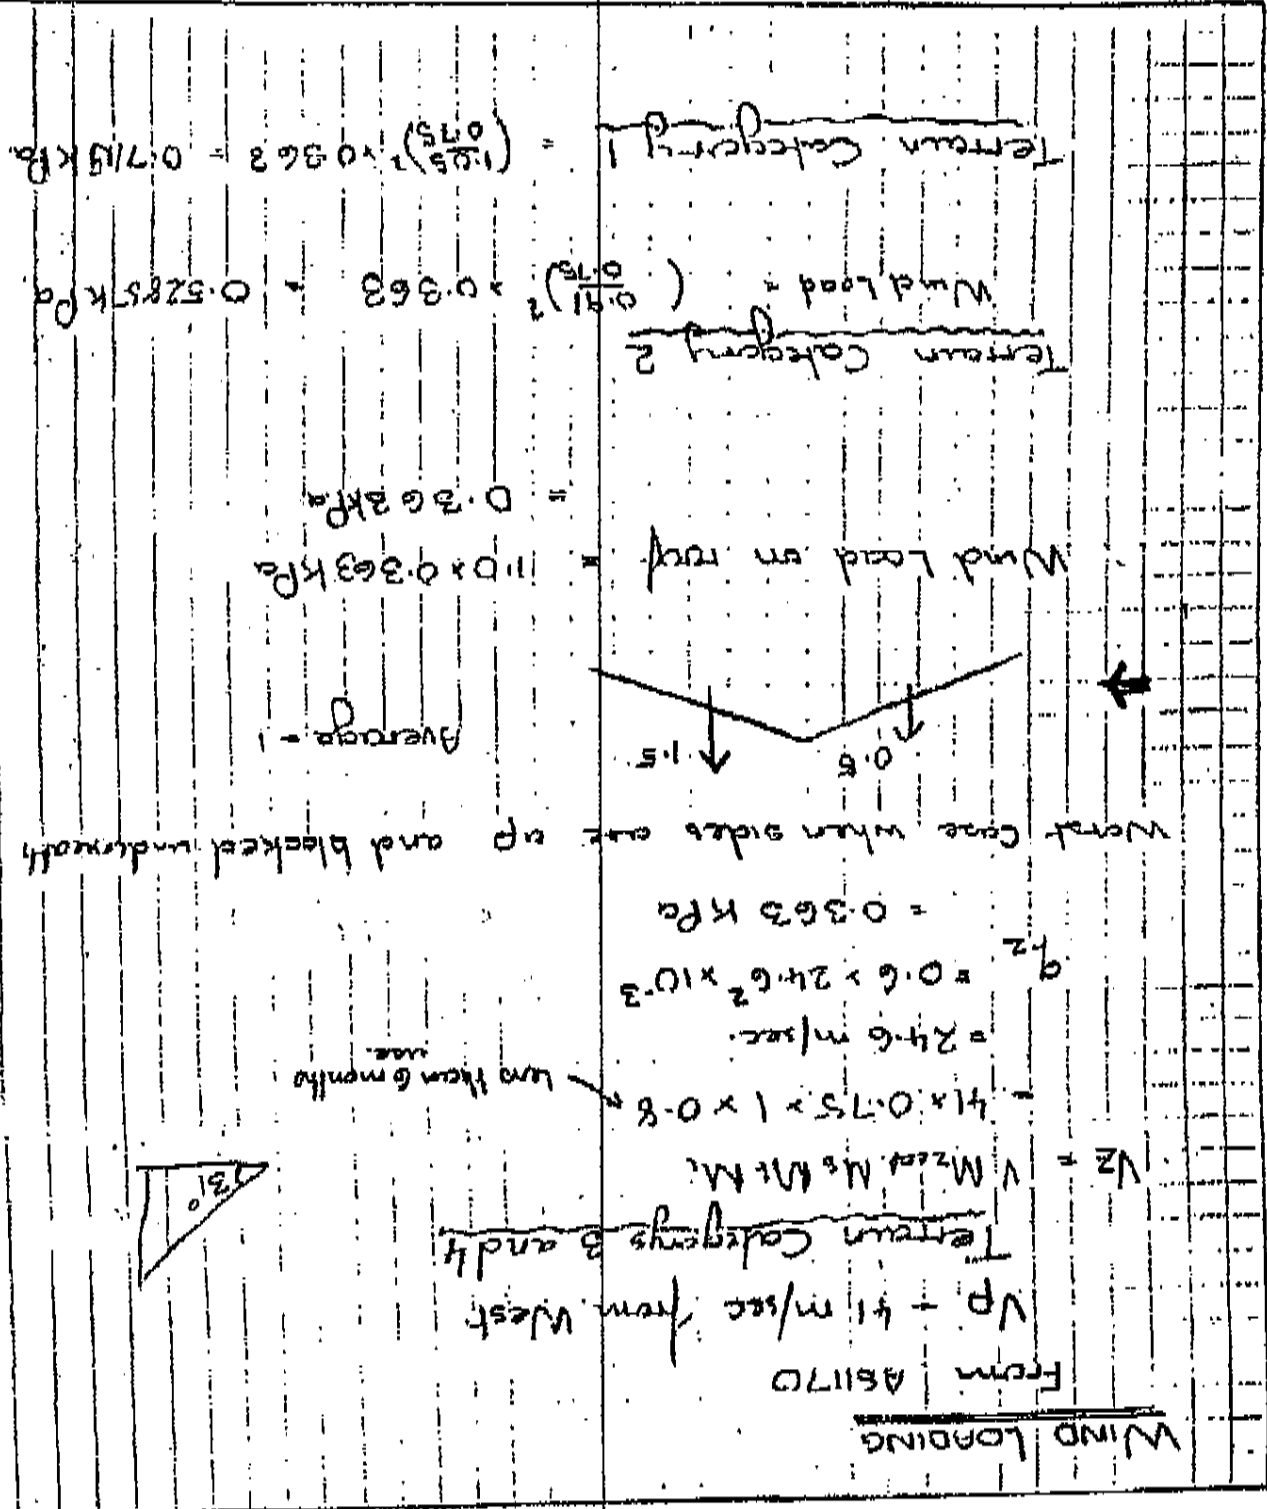 WIND LOADING
From AS1170
Vp - 41 m/sec from West
Terrain Categorys 3 and 4
31°
Vz = V Mzcat Ms Mt Mi
= 41 x 0.75 x 1 x 0.8
less than 6 months use.
= 24.6 m/sec.
qz = 0.6 x 24.6² x 10-3
= 0.363 KPa
Worst Case when sides are up and blocked underneath
0.5 1.5
Average = 1
Wind Load on roof = 1.0 x 0.363 KPa
= 0.363 kPa
Terrain Category 2
Wind Load = (0.91/0.75)² x 0.363 = 0.5285 KPa
Terrain Category 1 = (1.05/0.75)² x 0.363 = 0.7115 KPa